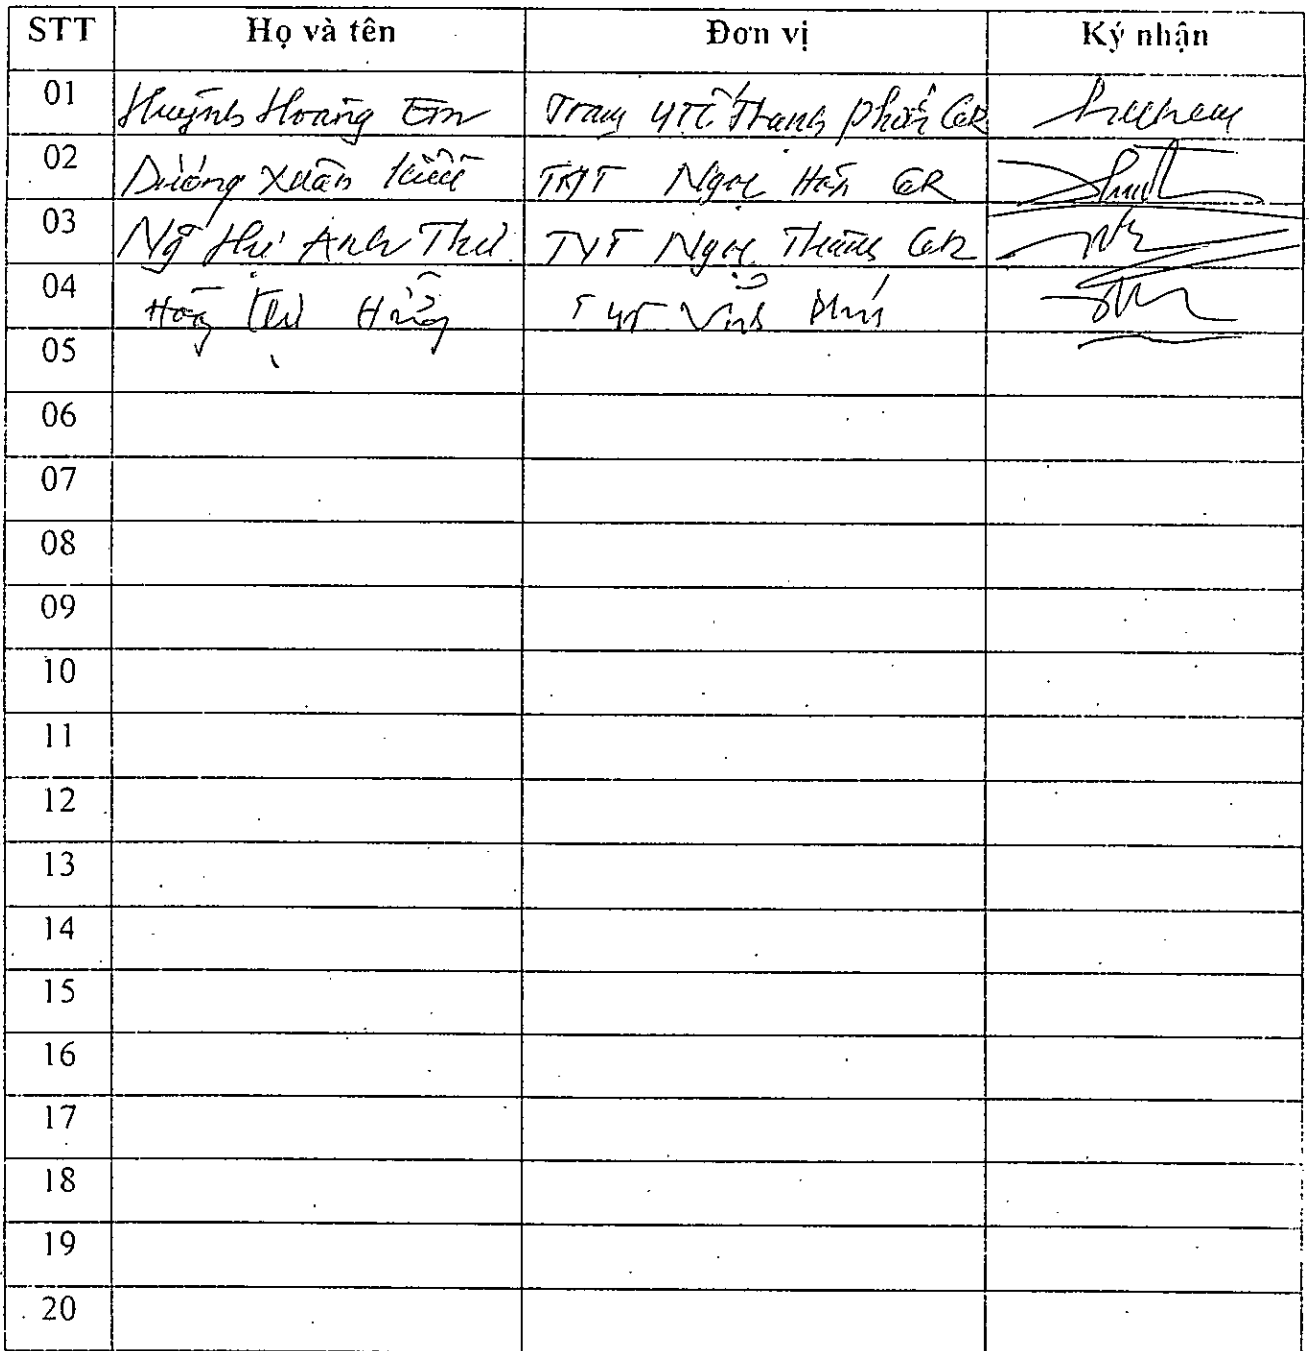 STT Họ và tên Đơn vị Ký nhận
01 Huỳnh Hoàng Em Trạm Y Tế Thạnh Phước GR
02 Dương Xuân TYT Ngọc Hòa GR
03 Ng Thị Anh Thư TYT Ngọc GR
04 Thị TYT Vĩnh Phú
05
06
07
08
09
10
11
12
13
14
15
16
17
18
19
20